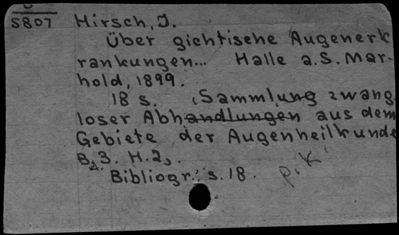 5807 Hirsch, J.
Über gichtische Augenerk
rankungen... Halle a.S. Mar-
hold, 1899.
18 S. (Sammlung zwang
loser Abhandlungen aus dem
Gebiete der Augenheilkunde
B. 3. H. 2).
Bibliogr.: s. 18. p. K